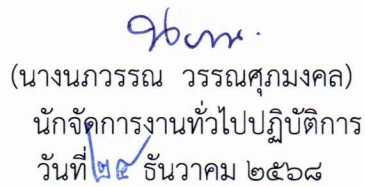 (นางนภวรรณ วรรณศุภมงคล)
นักจัดการงานทั่วไปปฏิบัติการ
วันที่ ๒๔ ธันวาคม ๒๕๖๘